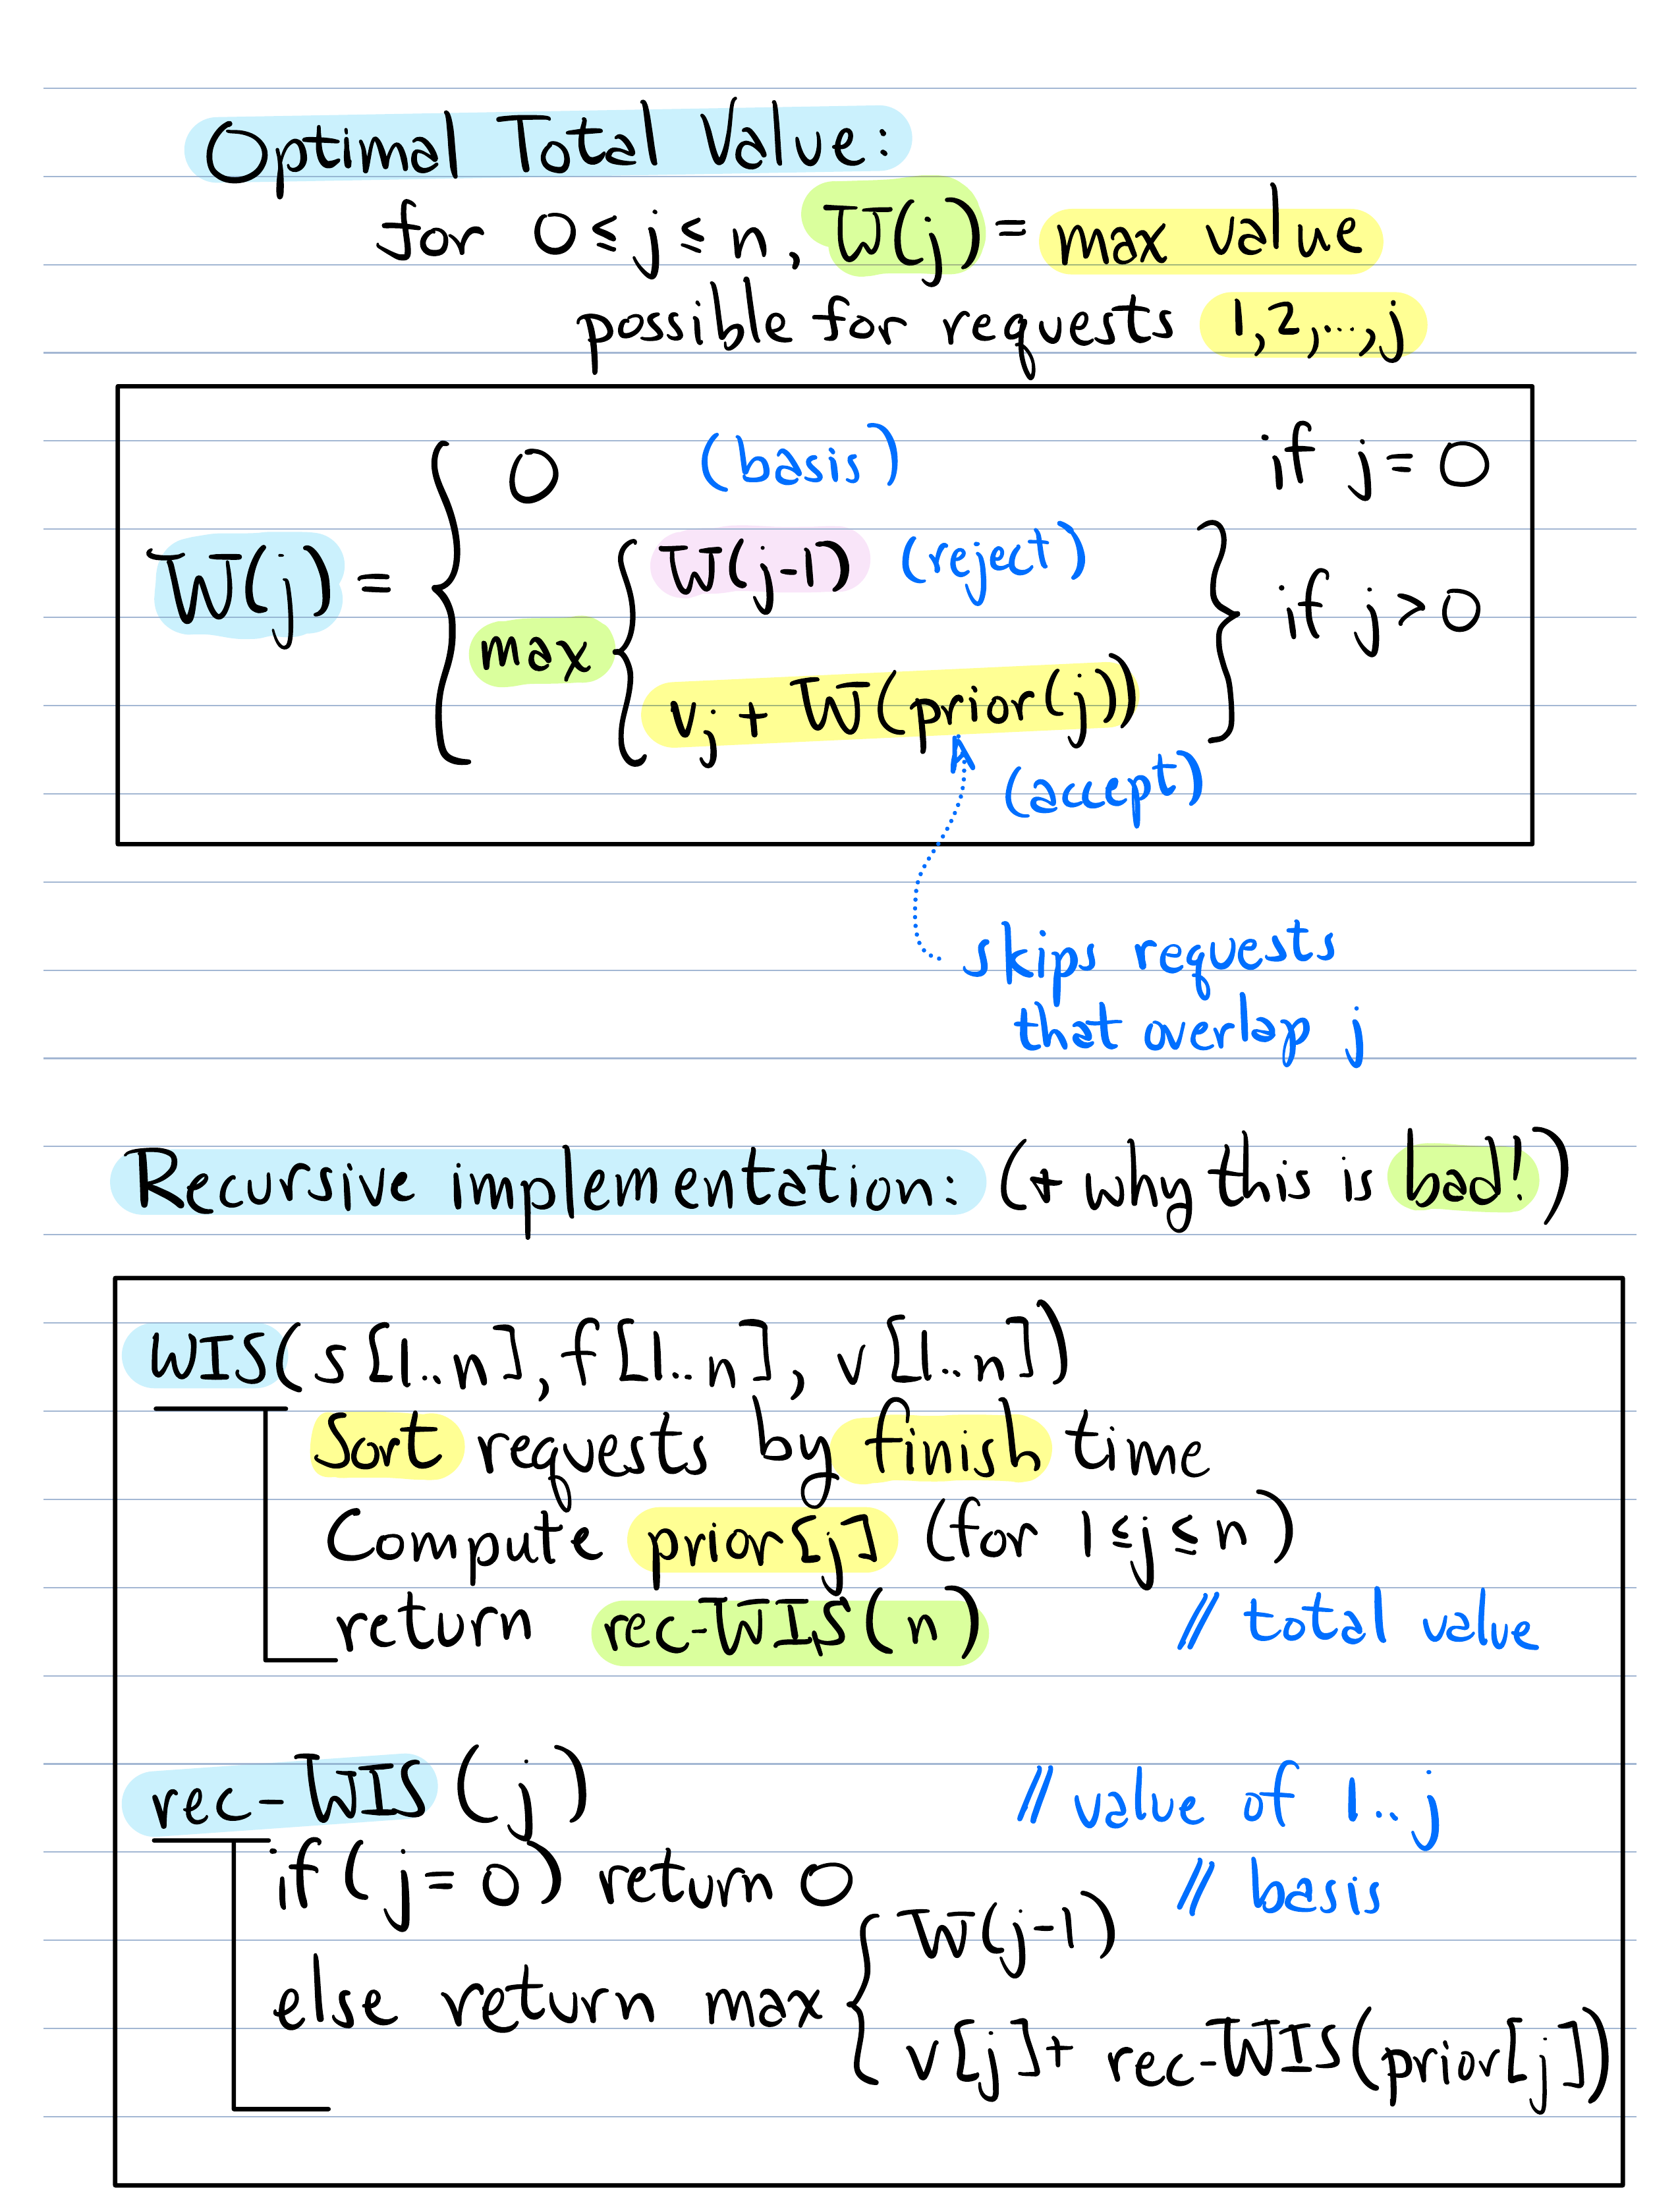 Optimal Total Value:
for 0 ≤ j ≤ n, W(j) = max value
possible for requests 1,2,...,j
0 (basis) if j = 0
W(j) = W(j-1) (reject) if j > 0
max
vj + W(prior(j))
(accept)
skips requests
that overlap j
Recursive implementation: (+ why this is bad!)
WIS(s[1..n], f[1..n], v[1..n])
Sort requests by finish time
Compute prior[j] (for 1 ≤ j ≤ n)
return rec-WIS(n) // total value
rec-WIS(j) // value of 1..j
if (j = 0) return 0 // basis
W(j-1)
else return max
v[j] + rec-WIS(prior[j])